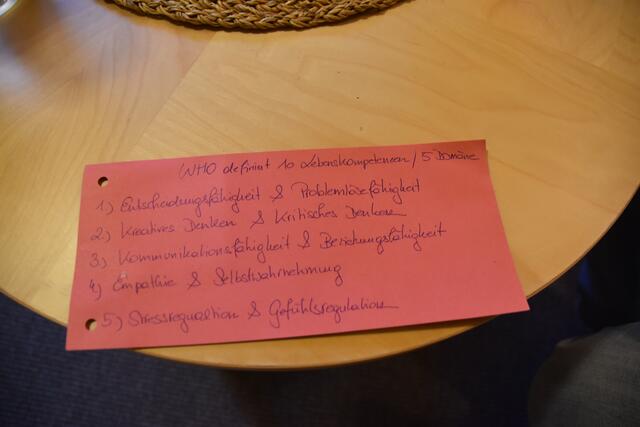 WHO definiert 10 Lebenskompetenzen / 5 Domäne
1) Entscheidungsfähigkeit & Problemlösefähigkeit
2) Kreatives Denken & Kritisches Denken
3) Kommunikationsfähigkeit & Beziehungsfähigkeit
4) Empathie & Selbstwahrnehmung
5) Stressregulation & Gefühlsregulation